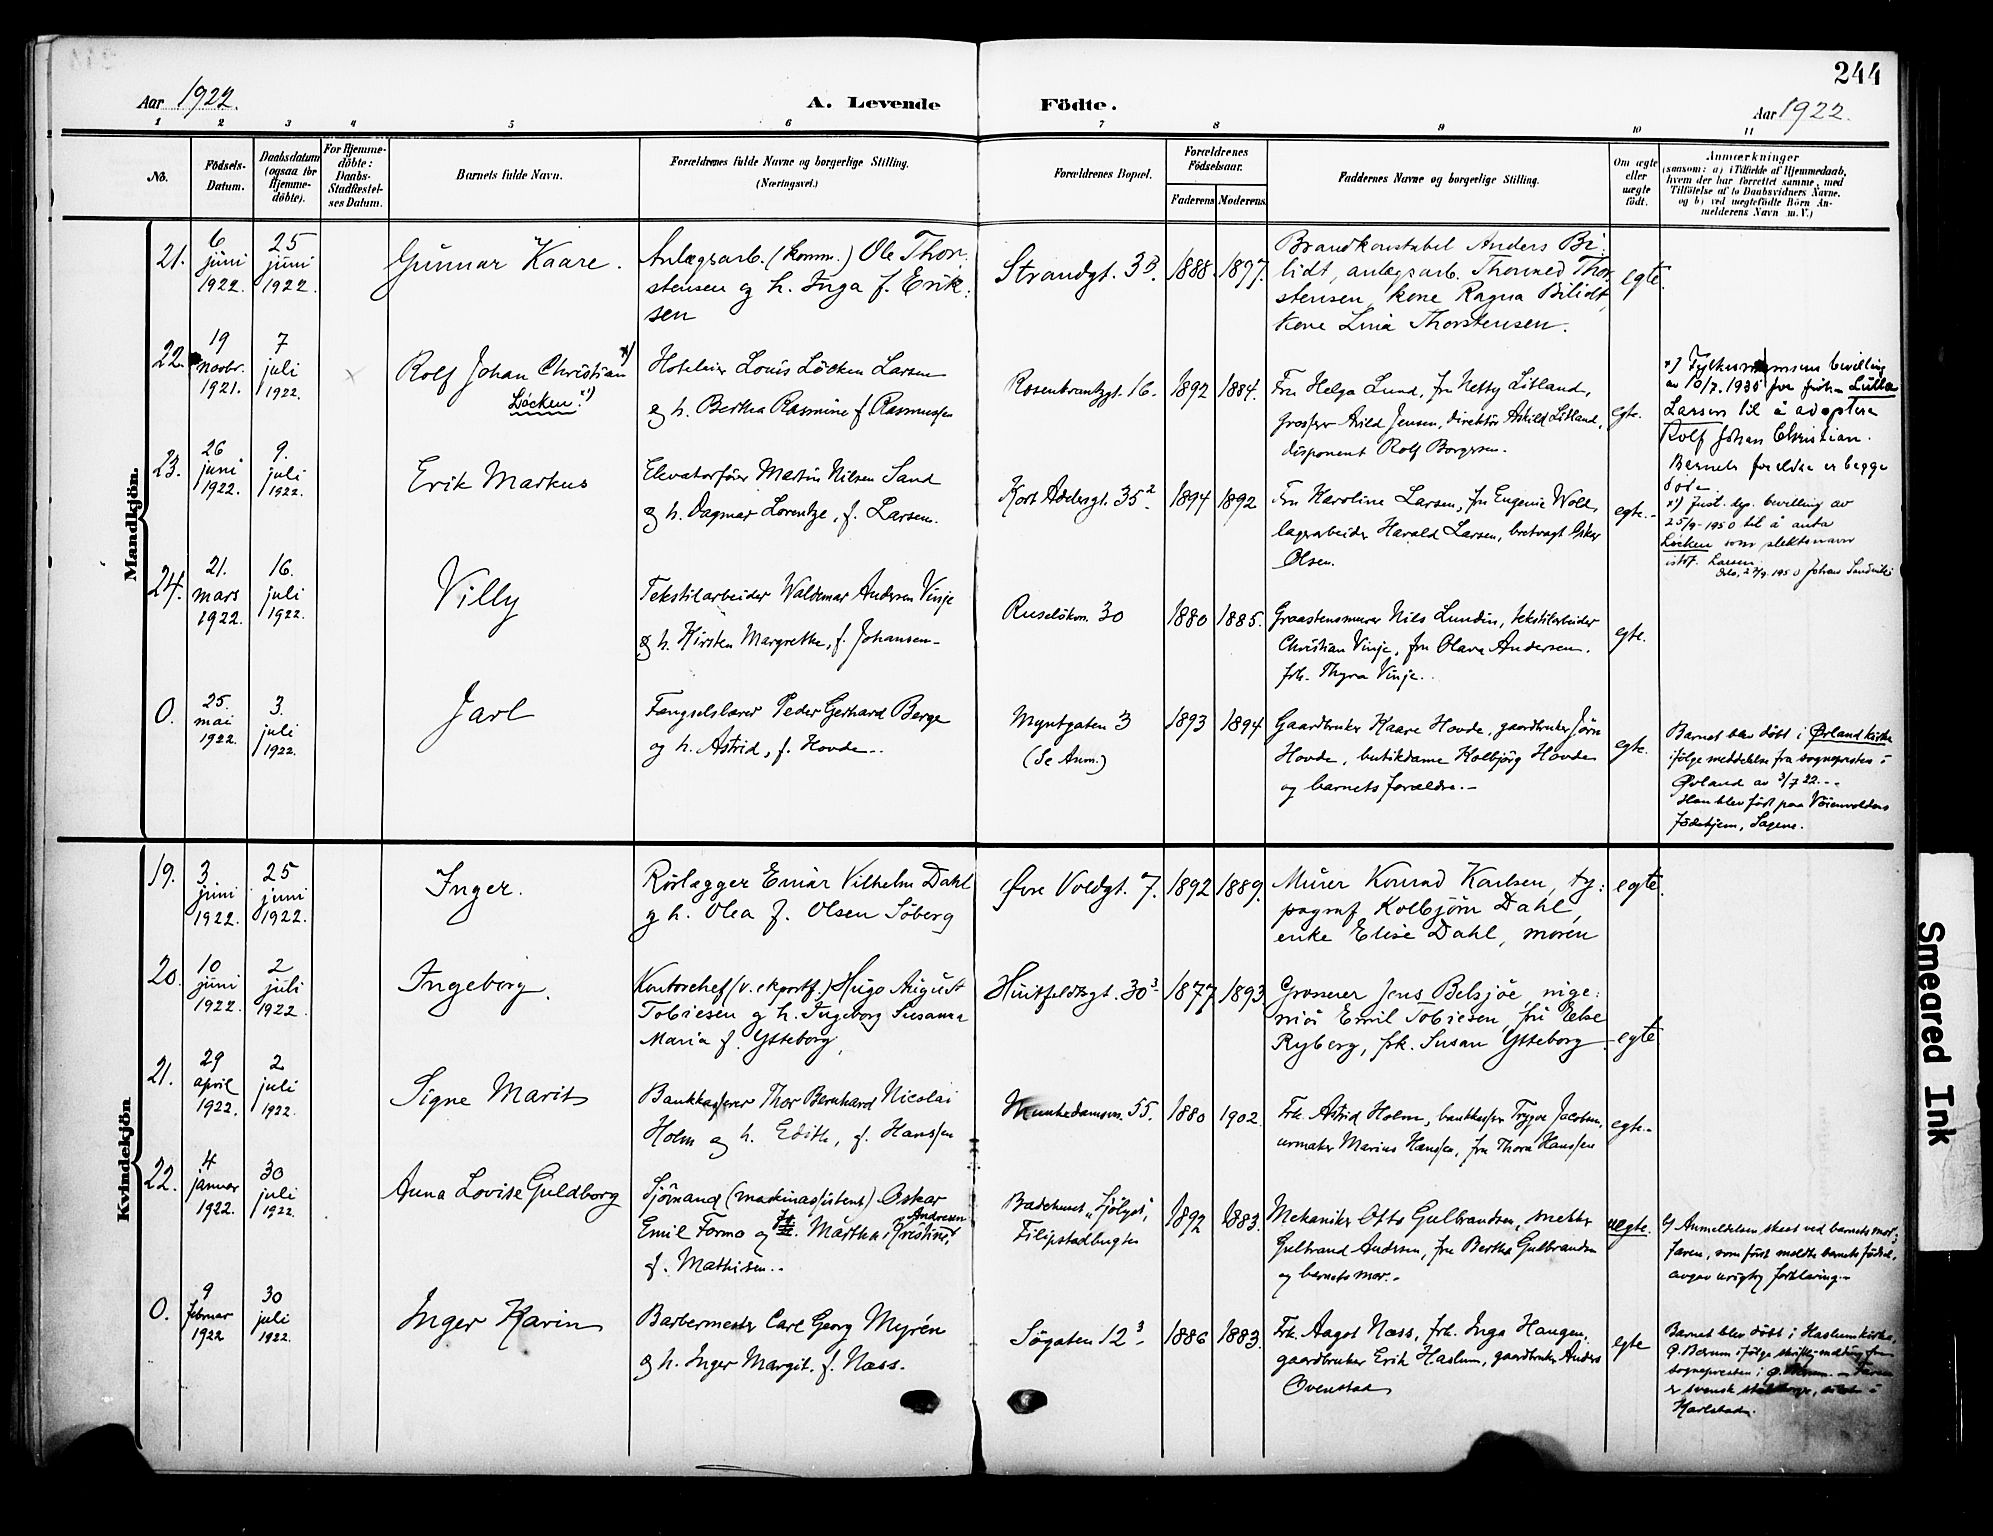 244
Aar 1922.
A. Levende
Födte.
Aar 1922.
1 2 3 4 5 6 7 8 9 10 11
No.
Födsels-
Datum.
Daabsdatum
(ogsaa for
Hjemme-
döbte).
For Hjemme-
döbte:
Daabs-
Stadfæstel-
ses Datum.
Barnets fulde Navn.
Forældrenes fulde Navne og borgerlige Stilling.
(Næringsvei.)
Forældrenes Bopæl.
Forældrenes
Födselsaar.
Faderens
Moderens
Faddernes Navne og borgerlige Stilling.
Om ægte
eller
uægte
födt.
Anmærkninger
(saasom: a) i Tilfælde af Hjemmedaab,
hvem der har forrettet samme, med
Tilföielse af to Daabsvidners Navne,
og b) ved uægtefödte Börn An-
melderens Navn m. V.)
Mandkjön.
21.
6
juni
1922.
25
juni
1922.
Gunnar Kaare.
Anlægsarb. (komm.) Ole Thor-
stensen og h. Inga f. Erik-
sen
Strandgt. 3B.
1888.
1897.
Brandkonstabel Anders Bi-
lidt, anlægsarb. Thormod Thor-
stensen, kone Ragna Bilidt,
kone Lina Thorstensen.
egte.
22.
19
novbr.
1921.
7
juli
1922.
Rolf Johan Christian x)
Löcken. x)
Hoteleier Louis Löcken Larsen
og h. Bertha Rasmine f. Rasmussen
Rosenkrantzgt. 16.
1892
1884.
Fru Helga Lund, fru Netty Litland,
grosserer Arild Jensen, direktör Askild Litland,
disponent Rolf Borgersen.
egte.
x) Fylkesmannens bevilling
av 10/7. 1935 for frk. Lulla
Larsen til å adoptere
Rolf Johan Christian.
Barnets foreldre er begge
döde.
x) Just. dep. bevilling av
25/9-1950 til å anta
Löcken som slektsnavn
istf. Larsen.
Oslo, 27/9. 1950 Johan
23.
26
juni
1922.
9.
juli
1922.
Erik Markus
Elevatorförer Martin Nilsen Sand
og h. Dagmar Lorentze, f. Larsen.
Kort Adelersgt. 35²
1894
1892
Fru Karoline Larsen, fru Eugenie Wold,
lagerarbeider Harald Larsen, Oskar
Olsen.
egte.-
24.
21.
mars
1922.
16.
juli
1922.
Villy
Tekstilarbeider Waldemar Andersen Vinje
og h. Kirsten Margrethe, f. Johansen-
Ruselökvn. 30
1880
1885.
Graastensmurer Nils Lundin, tekstilarbeider
Christian Vinje, fru Olava Andersen,
frk. Thyra Vinje.
egte.
0.
25.
mai
1922.
3.
juli
1922.
Jarl
Fængselslærer Peder Gerhard Berge
og h. Astrid, f. Hovde.-
Myntgaten 3
(Se Anm.)
1893
1894
Gaardbruker Kaare Hovde, gaardbruker Jörn
Hovde, butikdame Kolbjörg Hovde
og barnets forældre.-
egte.
Barnet blev döbt i Ørland kirke
ifölge meddelelse fra sognepresten i
Ørland av 3/7 22.-
Han blev födt paa Vöienvoldens
födehjem, Sagene.
Kvindekjön
19.
3
juni
1922.
25
juni
1922.
Inger.
Rörlægger Einar Vilhelm Dahl
og h. Olea f. Olsen Söberg
Øvre Voldgt. 7.
1892
1889.
Murer Konrad Karlsen, ty-
pograf Kolbjörn Dahl,
enke Elise Dahl, moren
egte.
20.
10
juni
1922.
2
juli
1922.
Ingeborg.
Kontorchef (v. eksportf.) Hugo August
Tobiesen og h. Ingeborg Susanna
Maria f. Ytteborg,
Huitfeldtsgt. 30³
1877
1893.
Grosserer Jens Belsjöe, inge-
niör Emil Tobiesen, fru Else
Ryberg, frk. Susan Ytteborg
egte
21.
29
april
1922.
2
juli
1922.
Signe Marit
Bankkasserer Thor Bernhard Nicolai
Holm og h. Edith, f. Hanssen
Munkedamsvn. 55.
1880
1902.
Frk. Astrid Holm, bankkasserer Trygve Jacobsen,
urmaker Marius Hanssen, fru Thora Hanssen
egte.-
22.
4
januar
1922.
30
juli
1922.
Anna Lovise Guldborg
Sjömand (maskinassistent) Oskar
Emil Formo og Martha Kristine Andresen
f. Mathisen.-
Badehuset "Sjölyst",
Filipstadbugten
1892
1883.
Mekaniker Otto Gulbrandsen, snekker
Gulbrand Andersen, fru Bertha Gulbrandsen
og barnets mor.-
uegte.
Anmeldelsen skeet ved barnets mor;
faren, som först meldte barnets födsel,
avgav urigtig forklaring.-
0.
9
februar
1922
30
juli
1922.
Inger Karin
Barbermester Carl Georg Myrén
og h. Inger Margit. f. Næss.
Sögaten 12³
1886
1883.
Frk. Aagot Næss, frk. Inga Haugen,
gaardbruker Erik Haslum, gaardbruker Anders
Ovenstad
egte
Barnet blev döbt i Haslum kirke,
Ø. Bærum ifölge skriftlig melding fra
sognepresten i Ø. Bærum. - Faren
er svensk
Karlstad.
Smeared Ink